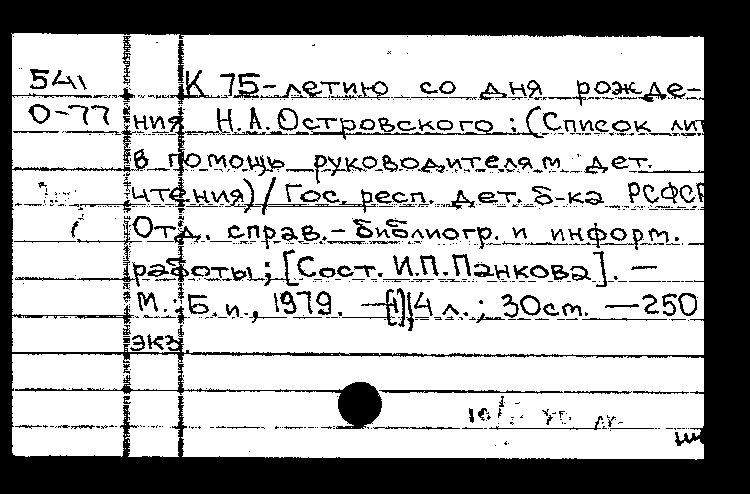 541 К 75-летию со дня рожде-
О-77 ния Н.А.Островского: (Список лит
в помощь руководителям дет.
чтения)/ Гос. респ. дет. б-ка РСФСР
Отд. справ.-библиогр. и информ.
работы; [Сост. И.П.Панкова]. —
М.: Б.и., 1979. —[1],14 л.; 30см. —250
экз.